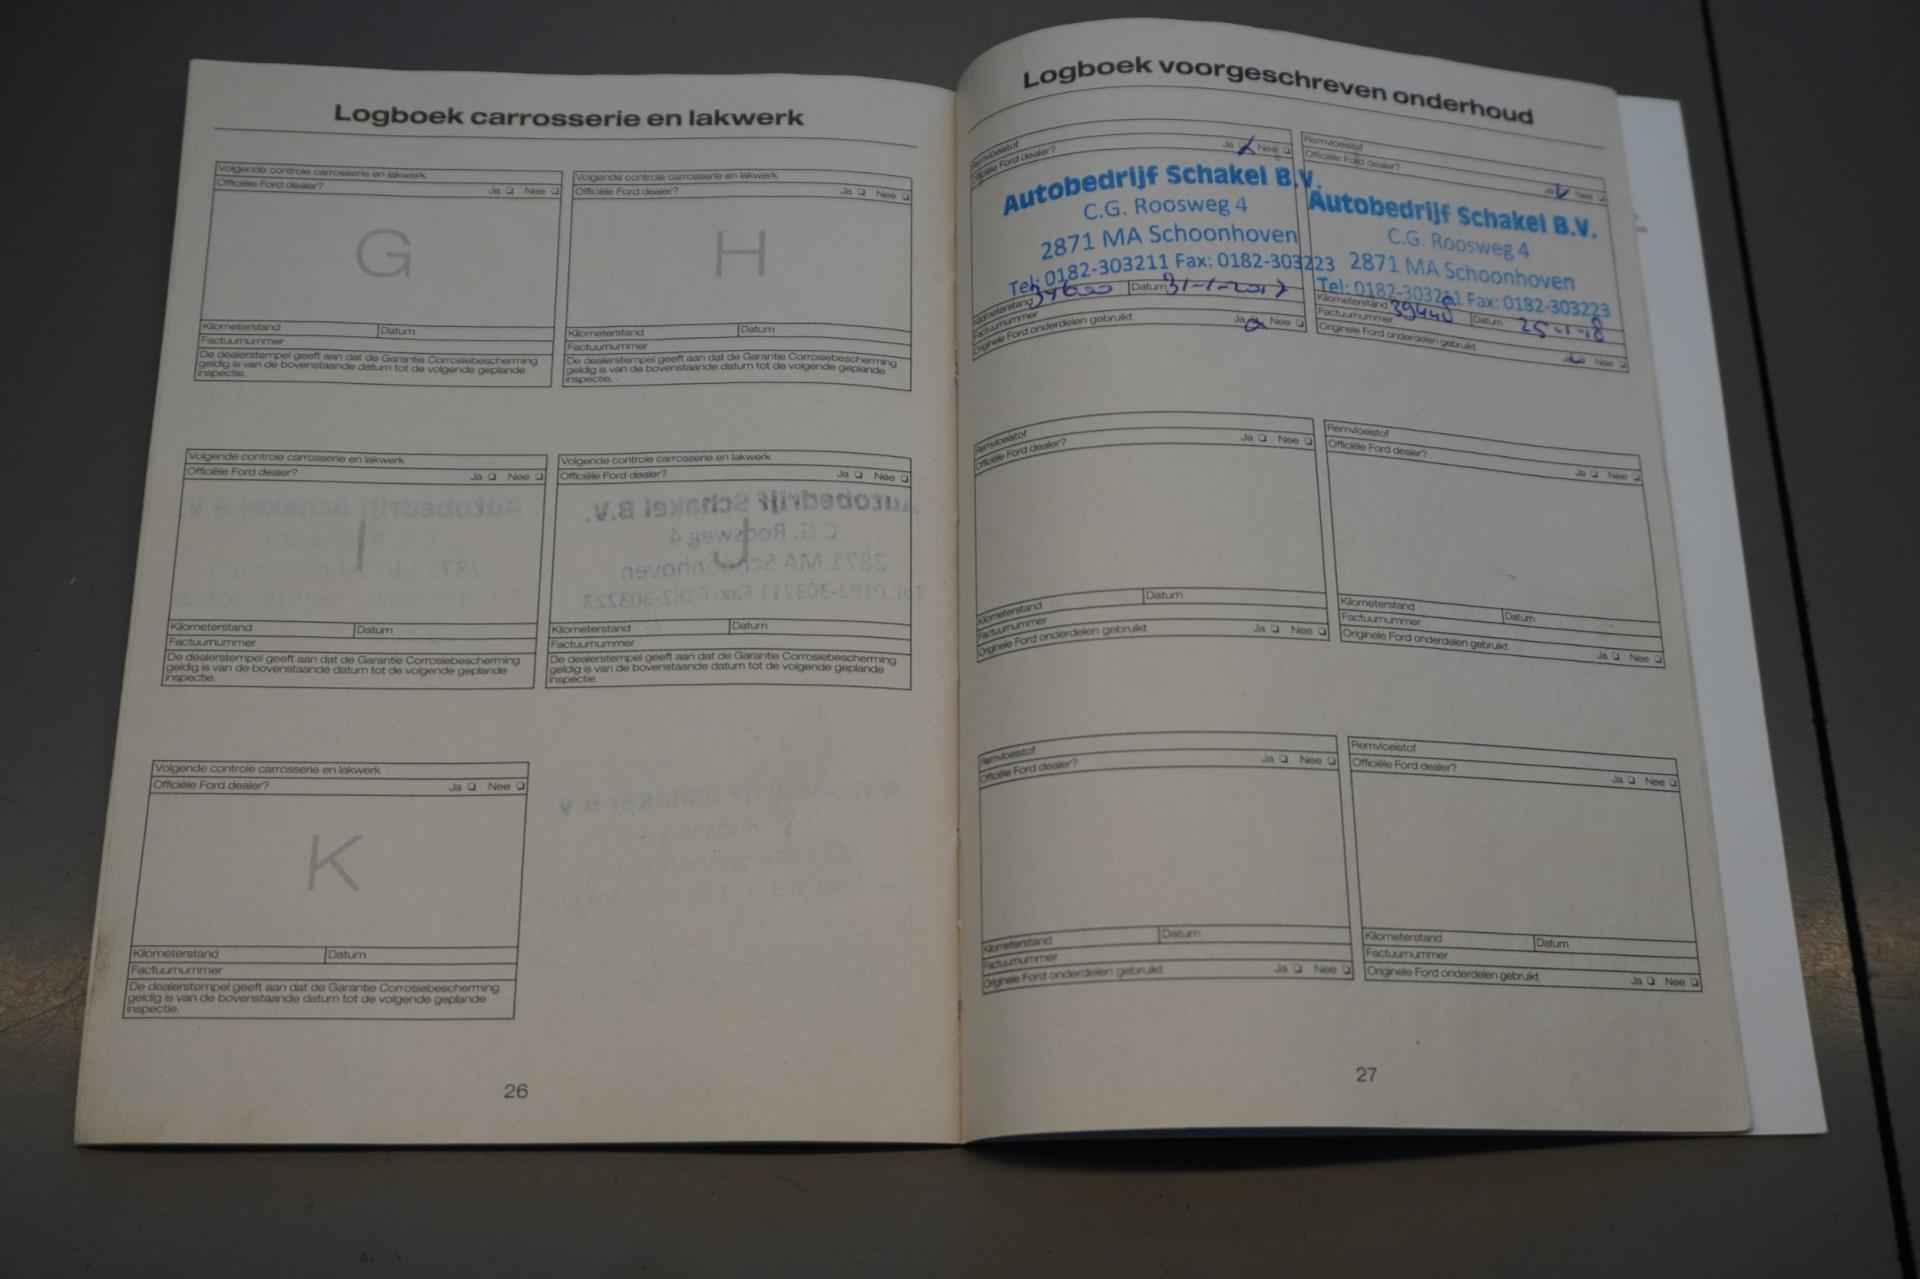 Logboek carrosserie en lakwerk
Volgende controle carrosserie en lakwerk
Officiële Ford dealer? Ja ❑ Nee ❑
G
Kilometerstand Datum
Factuurnummer
De dealerstempel geeft aan dat de Garantie Corrosiebescherming
geldig is van de bovenstaande datum tot de volgende geplande
inspectie.
Volgende controle carrosserie en lakwerk
Officiële Ford dealer? Ja ❑ Nee ❑
H
Kilometerstand Datum
Factuurnummer
De dealerstempel geeft aan dat de Garantie Corrosiebescherming
geldig is van de bovenstaande datum tot de volgende geplande
inspectie.
Volgende controle carrosserie en lakwerk
Officiële Ford dealer? Ja ❑ Nee ❑
I
Kilometerstand Datum
Factuurnummer
De dealerstempel geeft aan dat de Garantie Corrosiebescherming
geldig is van de bovenstaande datum tot de volgende geplande
inspectie.
Volgende controle carrosserie en lakwerk
Officiële Ford dealer? Ja ❑ Nee ❑
J
Kilometerstand Datum
Factuurnummer
De dealerstempel geeft aan dat de Garantie Corrosiebescherming
geldig is van de bovenstaande datum tot de volgende geplande
inspectie.
Volgende controle carrosserie en lakwerk
Officiële Ford dealer? Ja ❑ Nee ❑
K
Kilometerstand Datum
Factuurnummer
De dealerstempel geeft aan dat de Garantie Corrosiebescherming
geldig is van de bovenstaande datum tot de volgende geplande
inspectie.
26
Logboek voorgeschreven onderhoud
Remvloeistof
Officiële Ford dealer? Ja Nee ❑
Autobedrijf Schakel B.V.
C.G. Roosweg 4
2871 MA Schoonhoven
Tel: 0182-303211 Fax: 0182-303223
Kilometerstand Datum 31-1-2017
Factuurnummer
Originele Ford onderdelen gebruikt Ja Nee ❑
Remvloeistof
Officiële Ford dealer?
Ja Nee ❑
Autobedrijf Schakel B.V.
C.G. Roosweg 4
2871 MA Schoonhoven
Tel: 0182-303211 Fax: 0182-303223
Kilometerstand 39448 Datum 25-1-18
Factuurnummer
Originele Ford onderdelen gebruikt
Nee ❑
Remvloeistof
Officiële Ford dealer? Ja ❑ Nee ❑
Kilometerstand Datum
Factuurnummer
Originele Ford onderdelen gebruikt Ja ❑ Nee ❑
Remvloeistof
Officiële Ford dealer? Ja ❑ Nee ❑
Kilometerstand Datum
Factuurnummer
Originele Ford onderdelen gebruikt Ja ❑ Nee ❑
Remvloeistof
Officiële Ford dealer? Ja ❑ Nee ❑
Kilometerstand Datum
Factuurnummer
Originele Ford onderdelen gebruikt Ja ❑ Nee ❑
Remvloeistof
Officiële Ford dealer? Ja ❑ Nee ❑
Kilometerstand Datum
Factuurnummer
Originele Ford onderdelen gebruikt Ja ❑ Nee ❑
27